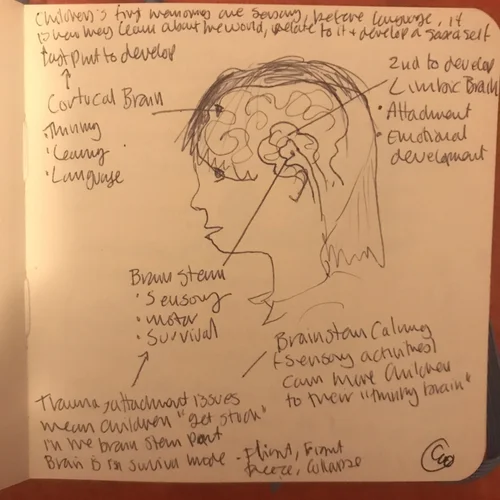 Children's first memories are sensory, before language, it
is when they learn about the world, relate to it + develop a sense of self
last part to develop
Cortical Brain
· Thinking
· Learning
· Language
2nd to develop
Limbic Brain
· Attachment
· Emotional
development
Brain stem
· Sensory
· motor
· Survival
Brainstem Calming
(sensory activities)
can move children
to their "thinking brain"
Trauma, attachment issues
mean children "get stuck"
in the brain stem part
Brain is in survival mode - Flight, Fight
freeze, collapse